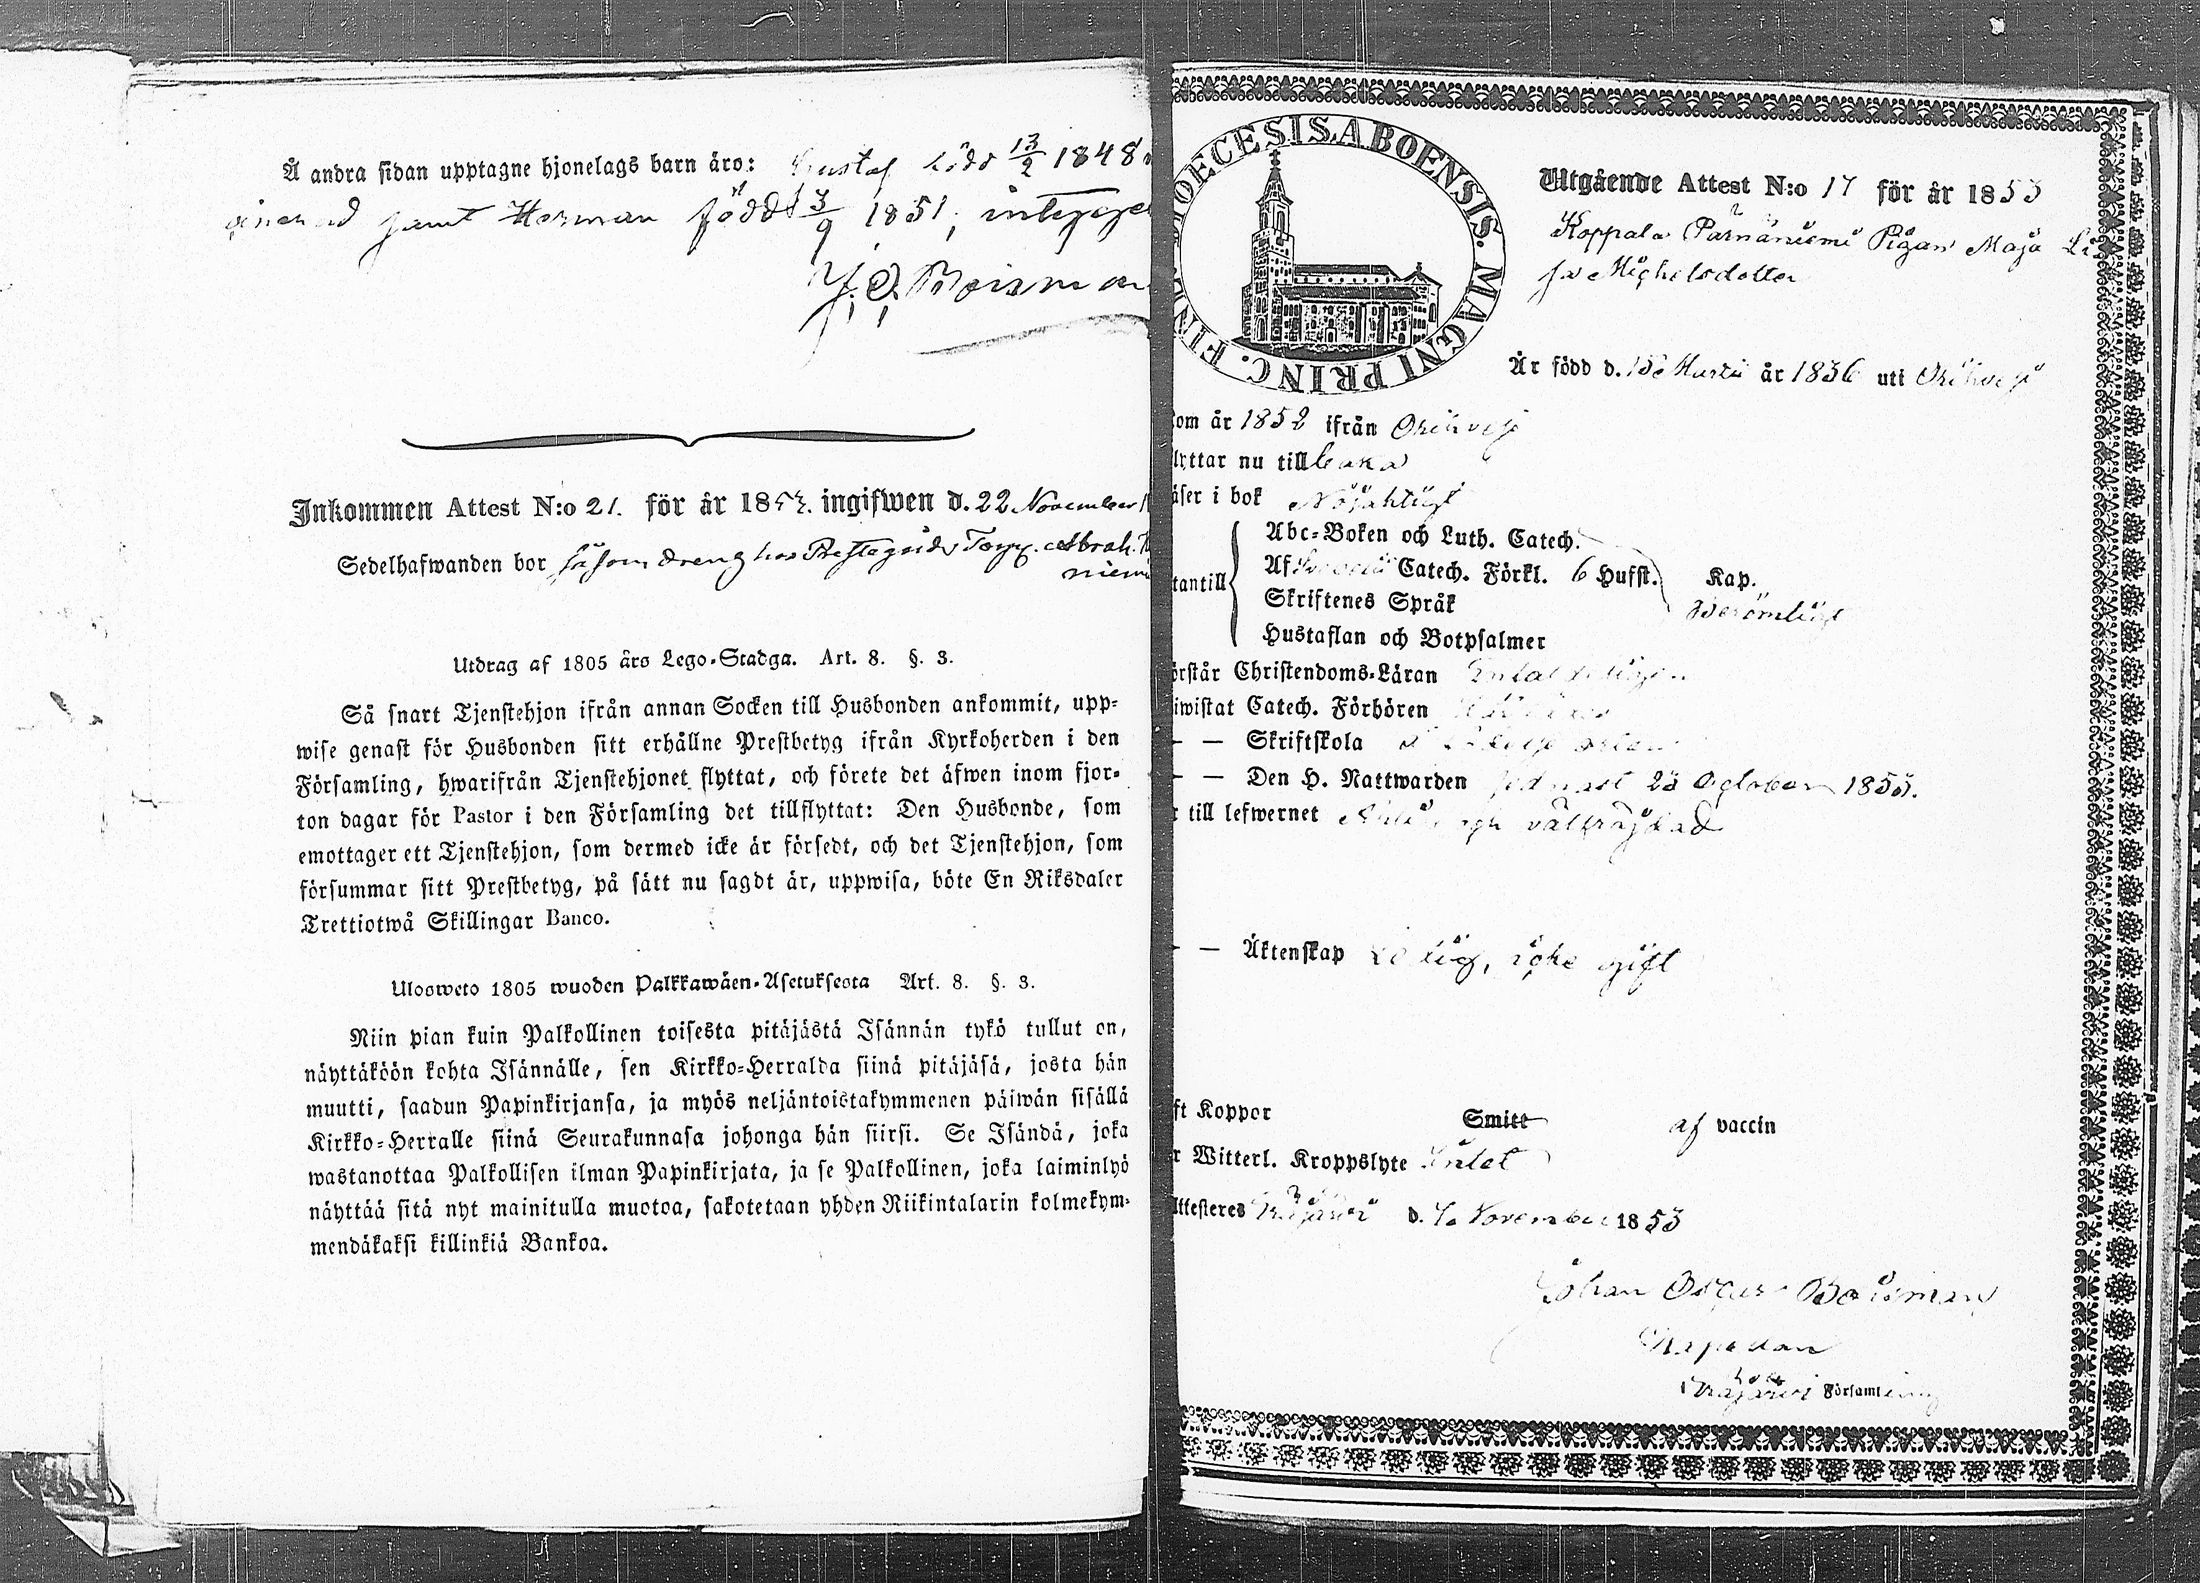 Å andra sidan upptagne hjonelags barn äro: Gustaf född 13/2 1848
samt Herman född 13/9 1851, intygge
J. O. Boisman
Inkommen Attest N:o 21. för år 1853. ingifwen d. 22 November
Sedelhafwanden bor såsom dreng hos Prestegårds Torp. Abrah.
niemi
Utdrag af 1805 års Lego-Stadga. Art. 8. §. 3.
Så snart Tjenstehjon ifrån annan Socken till Husbonden ankommit, upp-
wise genast för Husbonden sitt erhållne Prestbetyg ifrån Kyrkoherden i den
Församling, hwarifrån Tjenstehjonet flyttat, och förete det äfwen inom fjor-
ton dagar för Pastor i den Församling det tillflyttat: Den Husbonde, som
emottager ett Tjenstehjon, som dermed icke är försedt, och det Tjenstehjon, som
försummar sitt Prestbetyg, på sätt nu sagdt är, uppwisa, böte En Riksdaler
Trettiotwå Skillingar Banco.
Ulosweto 1805 wuoden Palkkawäen-Asetuksesta Art. 8. §. 3.
Niin pian kuin Palkollinen toisesta pitäjästä Isännän tykö tullut on,
näyttäköön kohta Isännälle, sen Kirkko-Herralda siinä pitäjäsä, josta hän
muutti, saadun Papinkirjansa, ja myös neljäntoistakymmenen päiwän sisällä
Kirkko-Herralle siinä Seurakunnasa johonga hän siirsi. Se Isändä, joka
wastanottaa Palkollisen ilman Papinkirjata, ja se Palkollinen, joka laiminlyö
näyttää sitä nyt mainitulla muotoa, sakotetaan yhden Riikintalarin kolmekym-
mendäkaksi killinkiä Bankoa.
DIOECESIS ABOENSIS. MAGNI PRINC. FINL.
Utgående Attest N:o 17 för år 1853
Koppala Pärnäniemi Pigan Maja Li
sa Michelsdotter
Är född d. 15 Martii år 1836 uti Orihvesi
om år 1852 ifrån Orihvesi
lyttar nu till
äser i bok Nöjaktigt
Abc-Boken och Luth. Catech.
Af Svebelii Catech. Förkl. 6 Hufst. Kap.
tantill Skriftenes Språk Berömligt
Hustaflan och Botpsalmer
örstår Christendoms-Läran
iwistat Catech. Förhören
— — Skriftskola
— — Den H. Nattwarden sednast 23 October 1853.
r till lefwernet välfrejdad
— — Äktenskap Ledig, icke gift
ft Koppor Smitt af vaccin
r Witterl. Kroppslyte Intet
Attesteres Eräjärvi d. 7 November 1853
Johan Oscar Boisman
Capellan
Eräjärvi Församling